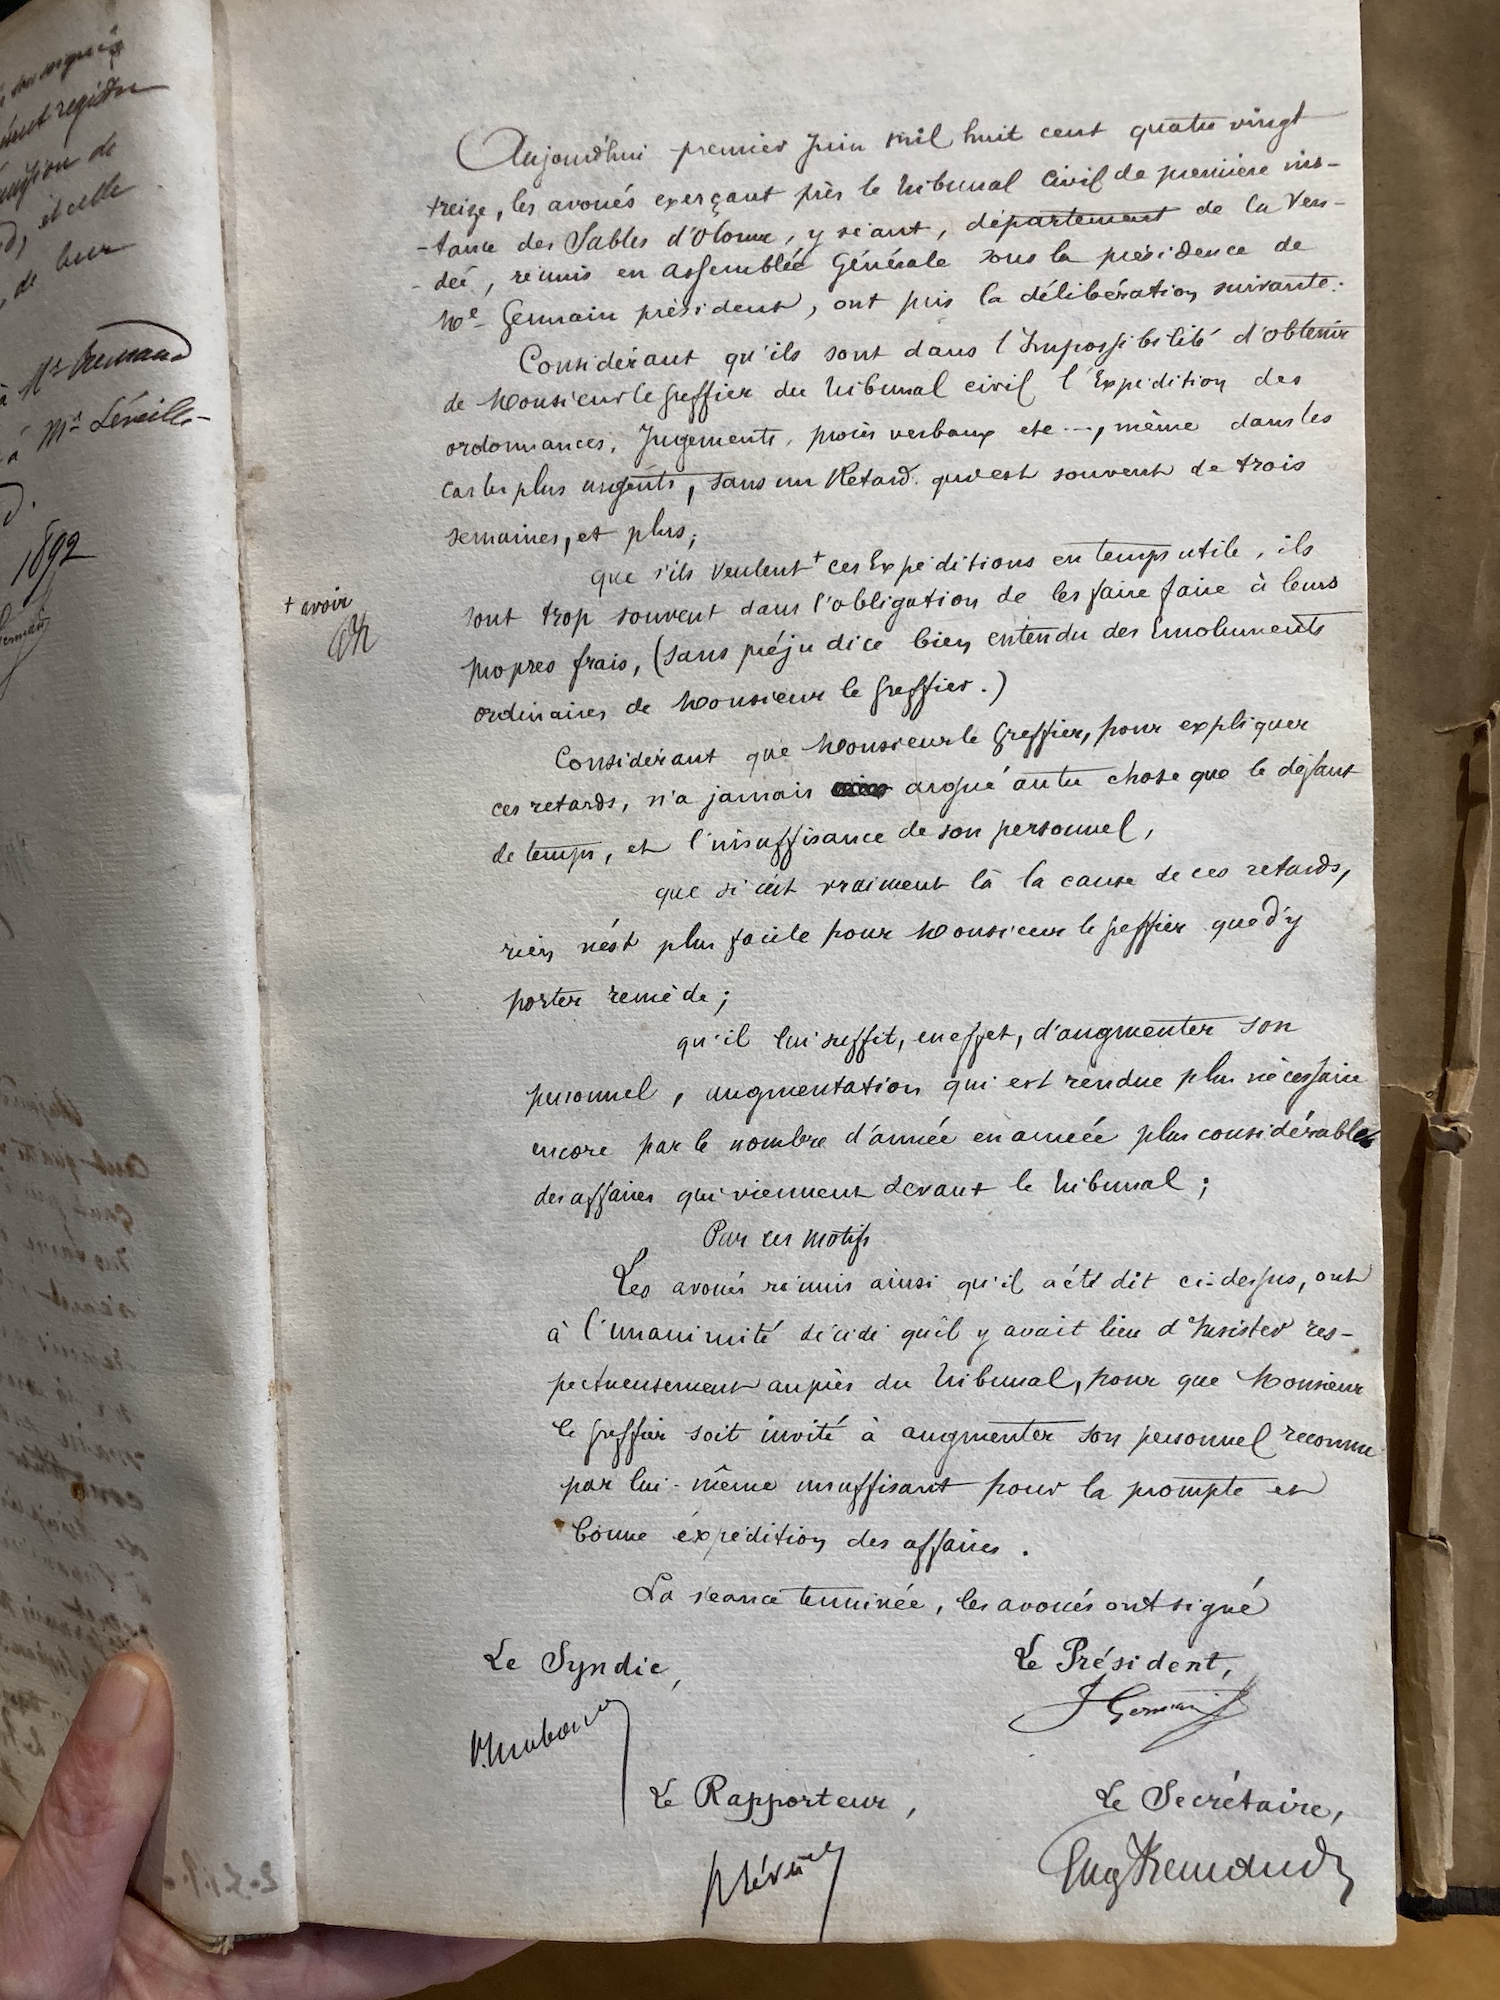 Aujourd'hui premier Juin mil huit cent quatre vingt
treize, les avoués exerçant près le tribunal civil de première ins-
-tance des Sables d'Olonne, y séant, département de la Ven-
-deé, réunis en assemblée Générale sous la présidence de
Me Germain président, ont pris la délibération suivante:
Considérant qu'ils sont dans l'Impossibilité d'obtenir
de Monsieur le Greffier du tribunal civil l'Expédition des
ordonnances, Jugements, procès verbaux etc..., même dans les
cas les plus urgents, sans un Retard qui est souvent de trois
semaines, et plus;
que s'ils veulent + ces Expéditions en temps utile, ils
+ avoir
sont trop souvent dans l'obligation de les faire faire à leurs
propres frais, (sans préjudice bien entendu des Emoluments
ordinaires de Monsieur le Greffier.)
Considérant que Monsieur le Greffier, pour expliquer
ces retards, n'a jamais argué autre chose que le défaut
de temps, et l'insuffisance de son personnel,
que si c'est vraiment là la cause de ces retards,
rien n'est plus facile pour Monsieur le Greffier que d'y
porter remède;
qu'il lui suffit, en effet, d'augmenter son
personnel, augmentation qui est rendue plus nécessaire
encore par le nombre d'année en année plus considérable
des affaires qui viennent devant le tribunal;
Par ces motifs
Les avoués réunis ainsi qu'il a été dit ci-dessus, ont
à l'unanimité décidé qu'il y avait lieu d'Insister res-
pectueusement auprès du tribunal, pour que Monsieur
le Greffier soit invité à augmenter son personnel reconnu
par lui-même insuffisant pour la prompte et
bonne éxpédition des affaires.
La séance terminée, les avoués ont signé
Le Syndic,
Le Président,
J Germain
Le Rapporteur,
Le Secrétaire,
à Me
à Me
1892